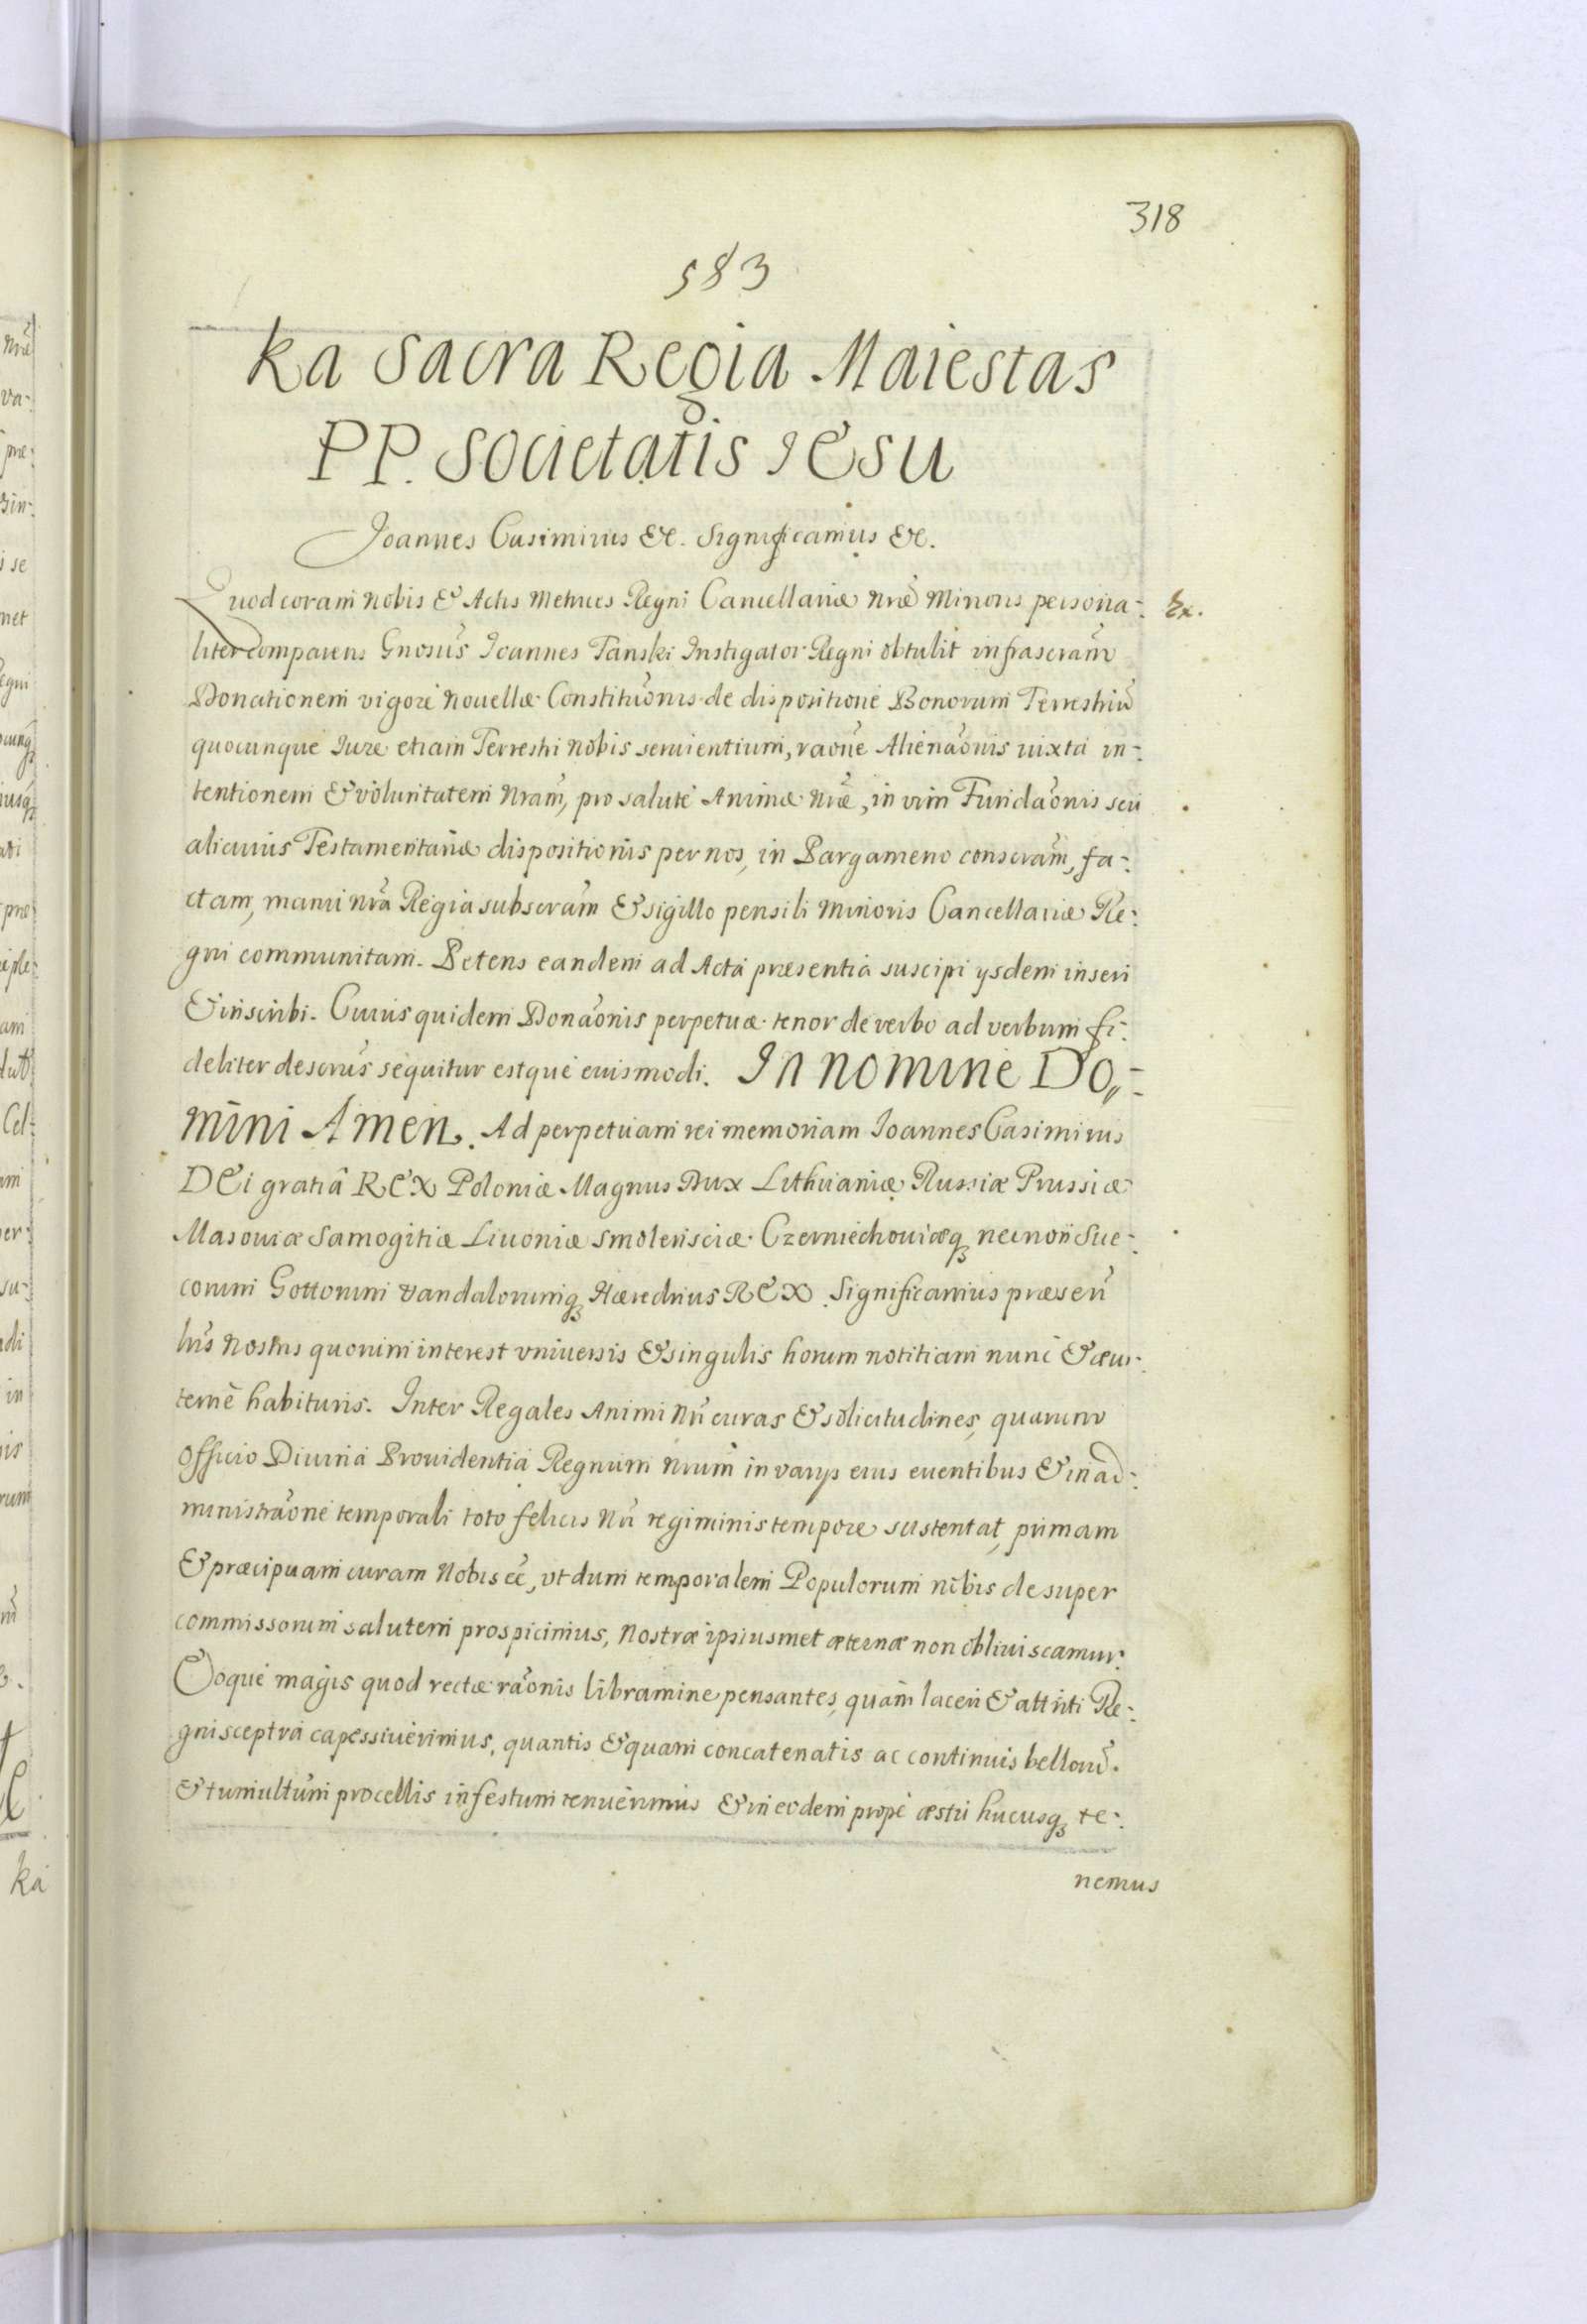 318
583
ka Sacra Regia Maiestas
PP. Societatis IESu
Joannes Casimirus &c. Significamus &c.
Quod coram nobis & Actis Metrices Regni Cancellariæ nræ Minoris persona-: Ex.
liter comparens Gnosus Joannes Tanski Instigator Regni obtulit infrascram
Donationem vigore nouellæ Constituõnis de dispositione Bonorum Terrestriũ
quocunque Iure etiam Terrestri nobis seruientium, raone Alienaõnis iuxta in-:
tentionem & voluntatem nram, pro salute Animæ nræ, in vim Fundaõnis seu
alicuius Testamentariæ dispositionis per nos, in Pargameno conscram, fa-:
ctam, manu nra Regia subscram & sigillo pensili Minoris Cancellariæ Re-:
gni communitam. Petens eandem ad Acta præsentia suscipi ysdem inseri
& inscribi. Cuius quidem Donaõnis perpetuæ tenor de verbo ad verbum fi-:
deliter descrus sequitur estque euismodi. In nomine Do,,-:
mini Amen. Ad perpetuam rei memoriam Joannes Casimirus
DEi gratiâ REX Poloniæ Magnus Dux Lithuaniæ Russiæ Prussiæ
Masouiæ Samogitiæ Liuoniæ Smolensciæ Czerniechouiæq₃ necnon Sue-:
corum Gottorum vandalorumq₃ Hæredrius REX. Significamus præsen
tibus nostris quorum interest vniuersis & singulis horum notitiam nunc & æui-:
ternè habituris. Inter Regales Animi nri curas & solicitudines, quarum
officio Diuina Prouidentia Regnum nrum in varys eius euentibus & in ad-:
ministraõne temporali toto felicis nri regiminis tempore sustentat, primam
& præcipuam curam nobis eẽ, vt dum temporalem Populorum nobis desuper
commissorum salutem prospicimus, nostræ ipsiusmet æternæ non obliuiscamur.
Eoque magis quod rectæ raõnis libramine pensantes, quam laceri & attriti Re-:
gni sceptra capessiuerimus, quantis & quam concatenatis ac continuis bellorũ.
& tumultum procellis infestum tenuerimus & in eodem prope æstu hucusq₃ te-:
nemus